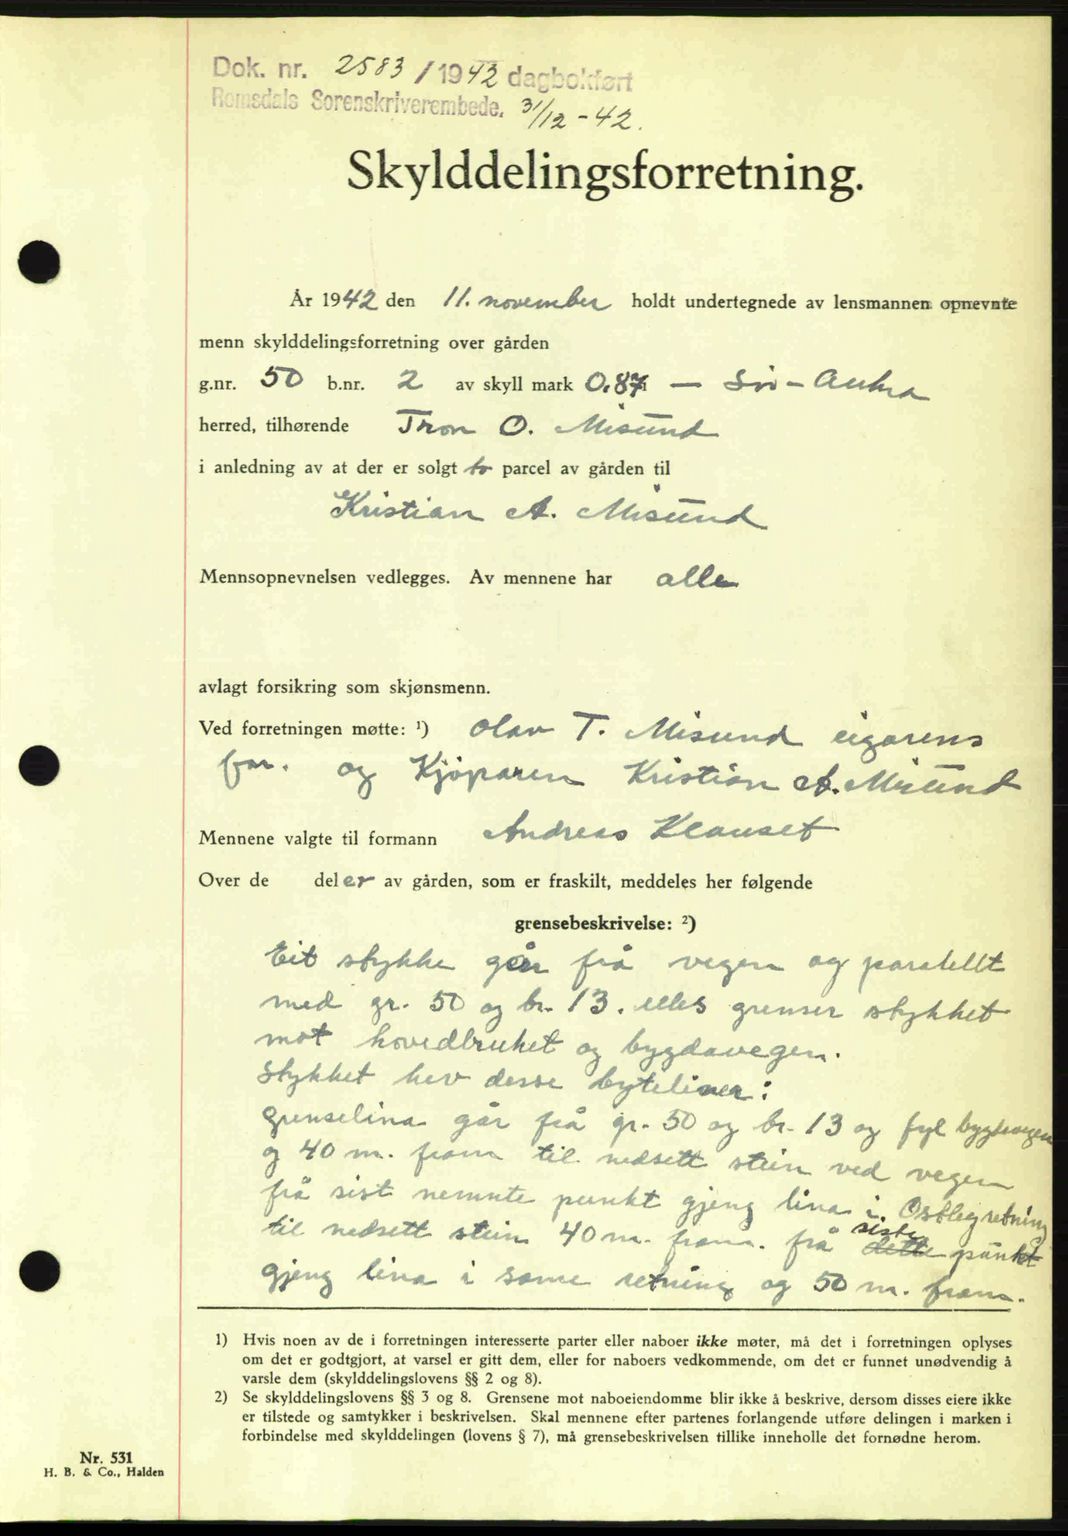 Dok. nr. 2583 / 1942 dagbokført
Romsdals Sorenskriverembede. 31/12 - 42.
Skylddelingsforretning.
År 1942 den 11. november holdt undertegnede av lensmannen opnevnte
menn skylddelingsforretning over gården
g.nr. 50 b.nr. 2 av skyll mark 0.87 — Sør-Aukra
herred, tilhørende Tron O. Misund
i anledning av at der er solgt to parcel av gården til
Kristian A. Misund
Mennsopnevnelsen vedlegges. Av mennene har alle
avlagt forsikring som skjønsmenn.
Ved forretningen møtte: 1) Olav T. Misund eigarens
far. og Kjöparen Kristian A. Misund
Mennene valgte til formann Andreas Klauset
Over de deler av gården, som er fraskilt, meddeles her følgende
grensebeskrivelse: 2)
Eit stykke går frå vegen og paralellt
med gr. 50 og br. 13. elles grenser stykket
mot hovedbruket og bygdavegen.
Stykket hev desse byteliner:
Grenselina går frå gr. 50 og br. 13 og fyl bygdavegen
og 40 m. fram til nedsett stein ved vegen
frå sist nemnte punkt gjeng lina i Ostleg retning
til nedsett stein 40 m. fram. frå dette siste punkt
gjeng lina i same retning og 50 m. fram.
1) Hvis noen av de i forretningen interesserte parter eller naboer ikke møter, må det i forretningen oplyses
om det er godtgjort, at varsel er gitt dem, eller for naboers vedkommende, om det er funnet unødvendig å
varsle dem (skylddelingslovens §§ 2 og 8).
2) Se skylddelingslovens §§ 3 og 8. Grensene mot naboeiendomme blir ikke å beskrive, dersom disses eiere ikke
er tilstede og samtykker i beskrivelsen. Skal mennene efter partenes forlangende utføre delingen i marken i
forbindelse med skylddelingen (lovens § 7), må grensebeskrivelsen tillike inneholle det fornødne herom.
Nr. 531
H. B. & Co., Halden